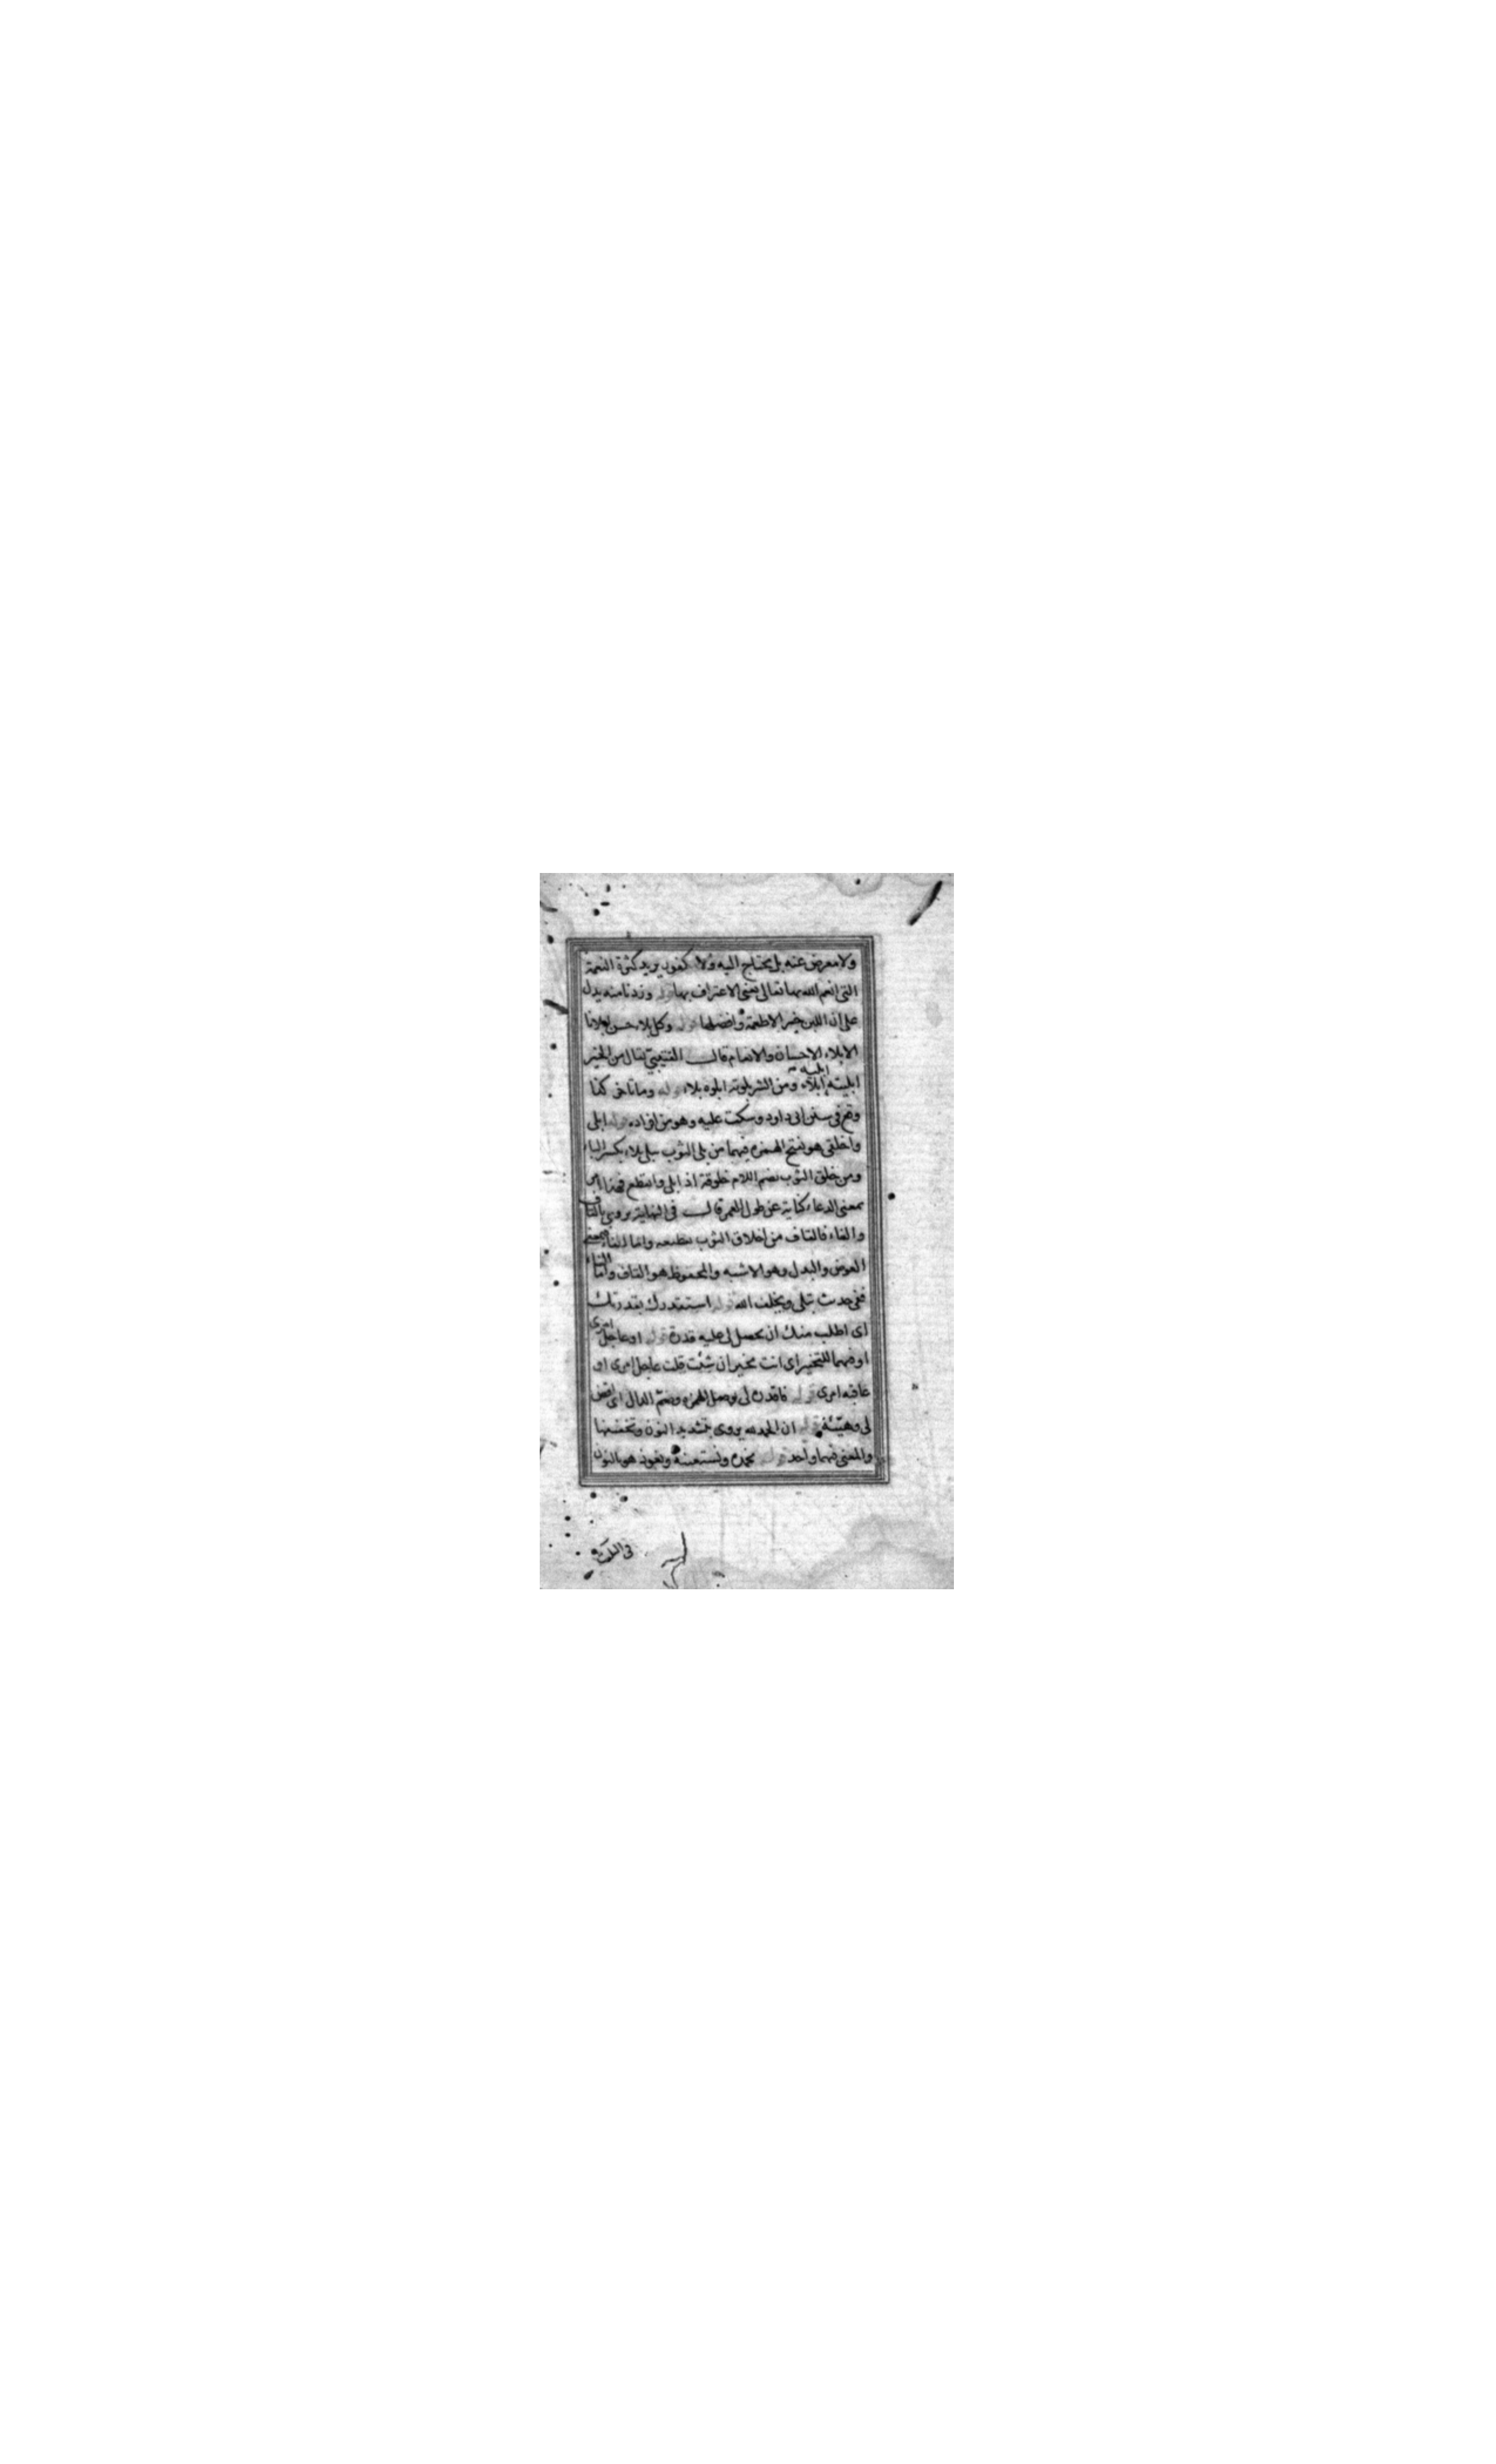 ولا معرض عنه بل يحتاج اليه ولا كفور يريد كثرة النعمة
التى انعم الله بها تعالى يعنى الاعتراف بها قوله وزدنا منه يدل
على ان اللبن خير الاطعمة وافضلها قوله وكل بلاء حسن ابلانا
الابلاء الاحسان والانعام قال القتيبي يقال من الخير
ابليته ابلاء ومن الشر بلوته ابلوه بلاء قوله وما تاخى كذا
ابليه
وقع فى سنن ابى داود وسكت عليه وهو من افراده قوله ابلى
واخلقى هو بفتح الهمزة فيهما من بلى الثوب يبلى بلاء بكسر الباء
ومن خلق الثوب بضم اللام خلوقة اذا بلى وانقطع فهذا امر
بمعنى الدعاء كناية عن طول العمر قال فى النهاية يروى بالقاف
والفاء فالقاف من اخلاق الثوب تقطيعه واما الفاء فبمعنى
العوض والبدل وهو الاشبه والمحفوظ هو القاف واما الفاء
ففى حديث تبلى ويخلف الله قوله استقدرك بقدرتك
اى اطلب منك ان يحصل لى عليه قدرة قوله او عاجل امرى
او فيهما للتخيير اى انت مخير ان شئت قلت عاجل امرى او
عاقبه امرى قوله فاقدره لى بوصل الهمزة وضم الدال اى اقض
لى وهيئه قوله ان الحمد لله يروى بتشديد النون وتخفيفها
والمعنى فيهما واحد قوله نحمده ونستعينه ونعوذ هو بالنون